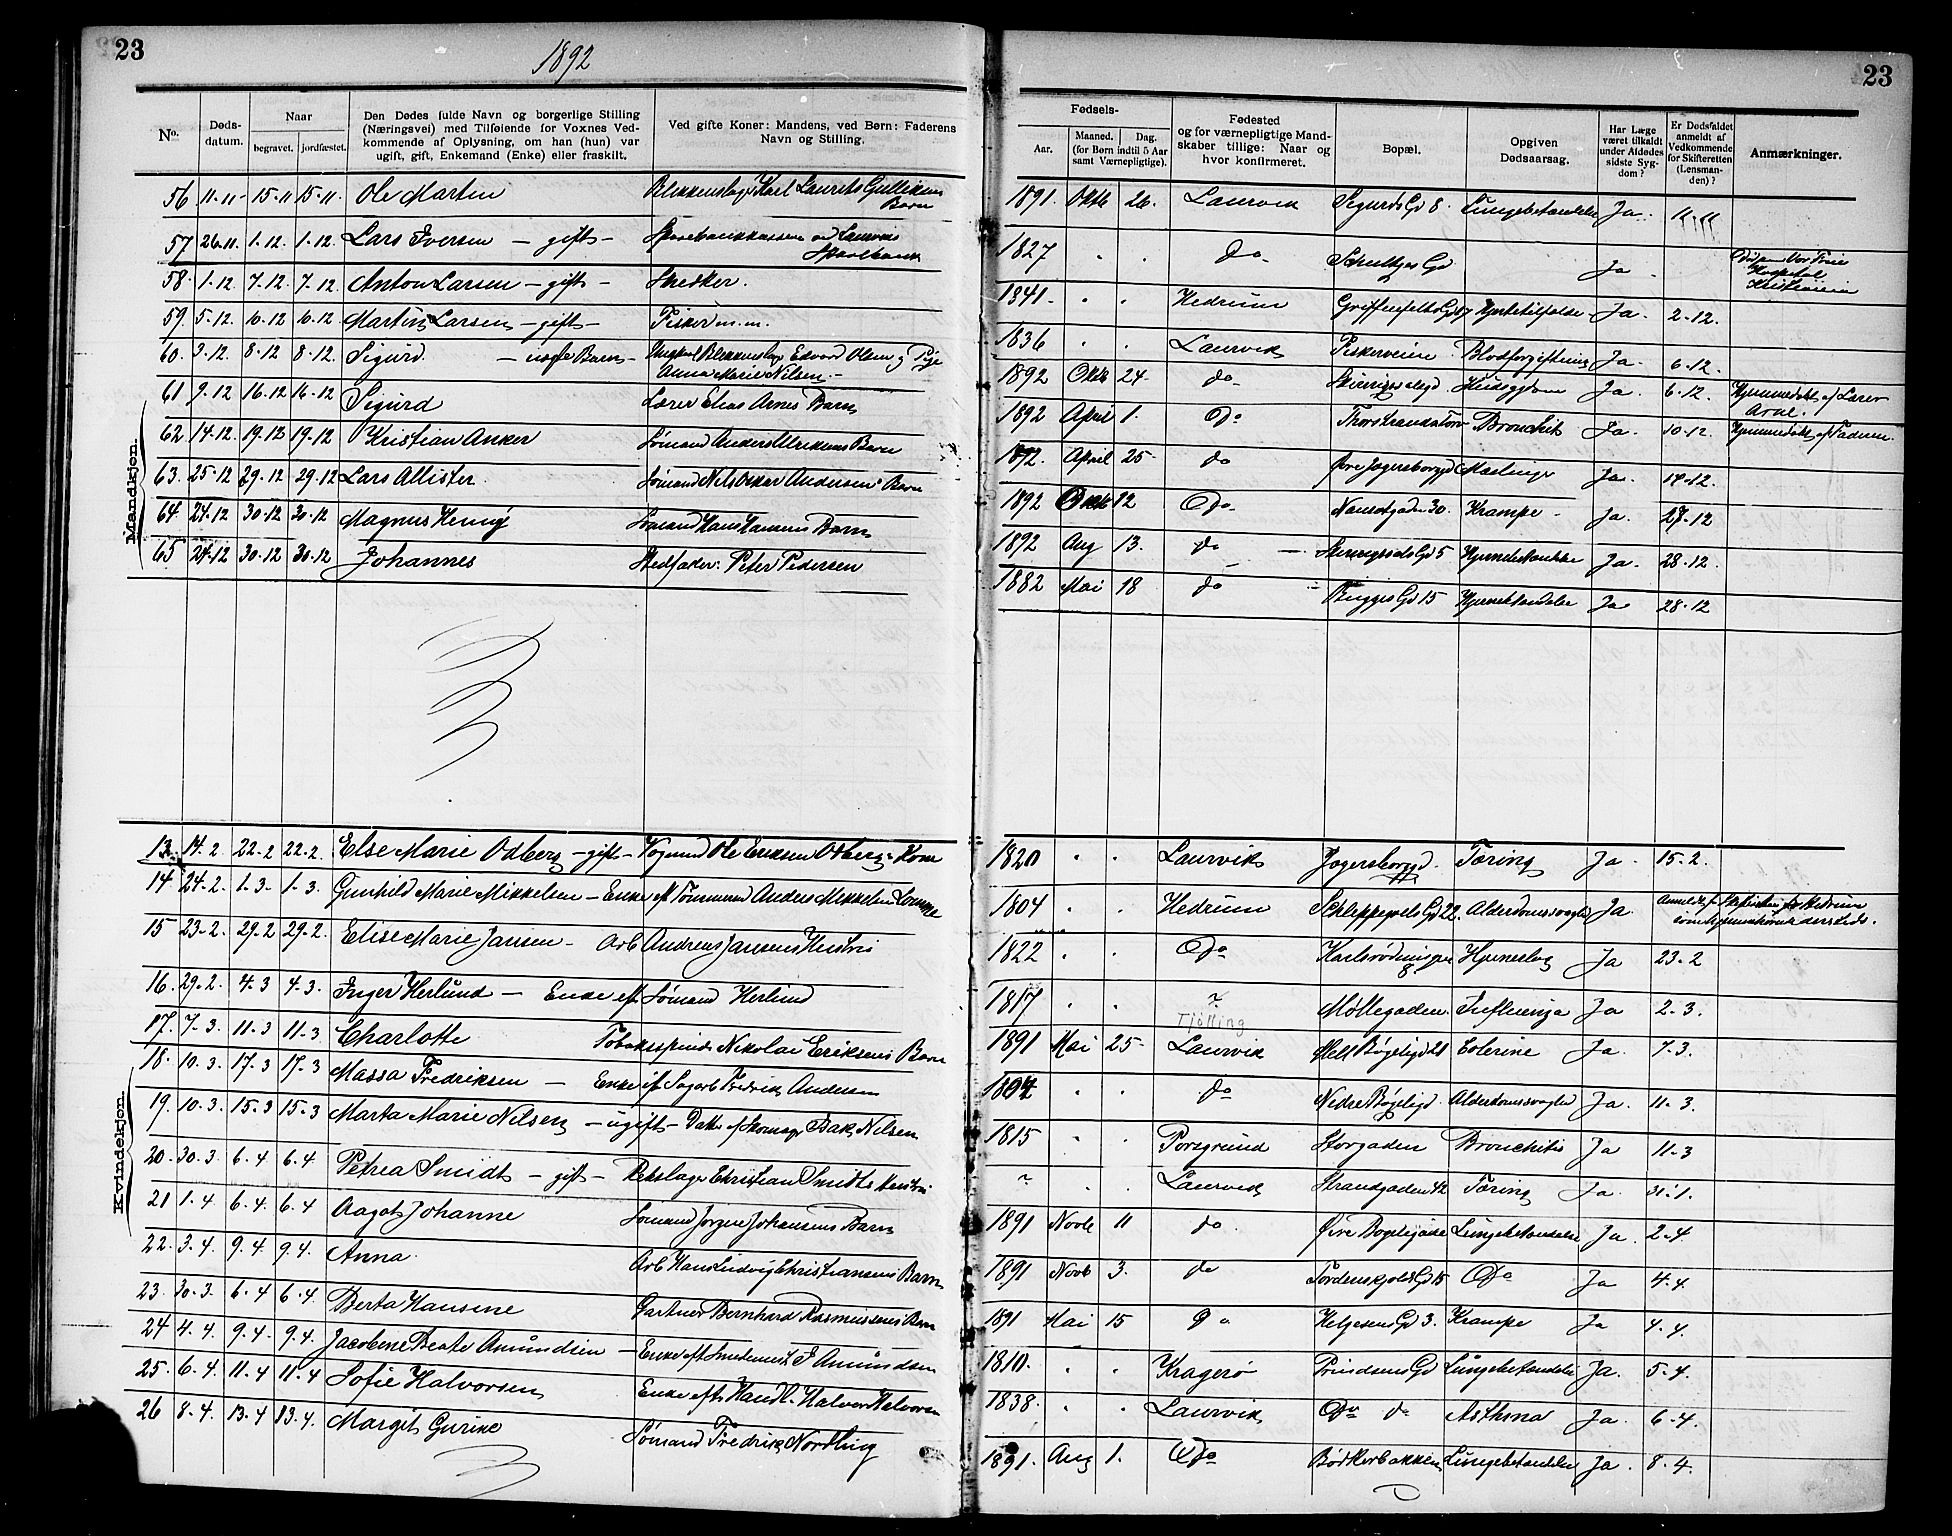 23
1892
23
No.
Døds-datum.
Naar
begravet. jordfæstet.
Den Dødes fulde Navn og borgerlige Stilling (Næringsvei) med Tilføiende for Voxnes Vedkommende af Oplysning, om han (hun) var ugift, gift, Enkemand (Enke) eller fraskilt.
Ved gifte Koner: Mandens, ved Børn: Faderens Navn og Stilling.
Fødsels-
Aar. Maaned. Dag.
(for Børn indtil 5 Aar samt Værnepligtige).
Fødested og for værnepligtige Mandskaber tillige: Naar og hvor konfirmeret.
Bopæl.
Opgiven Dødsaarsag.
Har Læge været tilkaldt under Afdødes sidste Sygdom?
Er Dødsfaldet anmeldt af Vedkommende for Skifteretten (Lensmanden)?
Anmærkninger.
Mandkjøn.
56 11-11 15-11 15-11 Ole Martin Blikkenslager Karl Laurits Gulliksens Barn 1891. Oktb 26. Laurvik Sigurds Gd 8. Lungebetændelse Ja. 11-11
57 26-11 1-12. 1-12. Lars Iversen - gift - Sparebankkasserer ved Laurviks Sparebank 1827 Do Schultzes Gd Ja
58. 1-12 7-12. 7-12. Anton Larsen - gift - Snedker. 1841. Hedrum Griffenfelts Gd Hjertetilfælde Ja. 2-12.
59. 5-12. 10-12 10-12 Martin Larsen - gift - Fisker m.m. 1836 Laurvik Fiskerveien Blodforgiftning Ja. 6-12.
60. 3-12. 8-12 8-12. Sigurd - uægte Barn - Ungkarl Blikkenslager Edvard Olsen og Pige Anna Marie Nilsen. 1892 Oktb 24. do Ja. 6-12. Hjemmedøbt af Lærer Arne.
61 9-12 16-12 16-12 Sigurd Lærer Elias Arnes Barn 1892 April 1. Do Bronchit Ja. 10-12. Hjemmedøbt af Faderen.
62 14-12. 19-12 19-12 Kristian Anker Sømand Anders Ulriksens Barn 1892. April 25 do Øvre Jegersborggd Mæslinger Ja. 14-12.
63. 25-12 29-12 29-12 Lars Allister. Sømand Nils Oskar Andersens Barn 1892 Oktb 12 Do Nansetgaden 30. Krampe Ja. 27-12
64. 24-12 30-12 30-12 Magnus Henry Sømand Hans Hansens Barn 1892 Aug 13. do Gd 5 Hjernebetændelse Ja. 28-12.
65 24-12 30-12 30-12 Johannes Stedfader: Peter Pedersen 1882 Mai 18 do Bugges Gd 15 Hjernebetændelse Ja 28-12
Kvindekjøn.
13. 14-2 22-2 22-2. Else Marie Odberg - gift - Vognmd Ole Eriksen Odbergs Kone 1820 Laurvik Jegersborggd. Tæring Ja 15-2.
14 24-2. 1-3. 1-3. Gunhild Marie Mikkelsen - Enke ef Tømmermd Anders Mikkelsen 1804 Hedrum Schleppegrels Gd 22. Alderdomssvaghed Ja.
15 23-2. 29-2 29-2. Elise Marie Jansen - Arb Andreas Jansens Hustru 1822 Do 8 Hjerneslag Ja 23-2
16. 29-2. 4-3 4-3. Inger Herlund - Enke ef. Sømand Herlund 1817 ? Tjølling Møllegaden. Influenza Ja 2-3.
17. 7-3. 11-3 11-3 Charlotte Tobaksspinder Nikolai Eriksens Barn 1891 Mai 25 Laurvik Bøgeligd 21 Colerine Ja. 7-3.
18. 10-3. 17-3 17-3 Massa Fredriksen - Enke ef Sagarb Fredrik Andersen do Nedre Bøgeligd. Alderdomssvaghed Ja. 11-3.
19. 10-3. 15-3 15-3 Marta Marie Nilsen - ugift - Datter af Skomager Isak Nilsen 1815 Porsgrund Storgaden Bronchitis Ja 11-3
20. 30-3. 6-4 6-4. Petrea Smidt - gift - Rebslager Christian Smidts Hustru ? Laurvik Strandgaden 42 Tæring Ja. 31-1.
21 1-4 6-4 6-4 Aagot Johanne Sømand Jørgen Johansens Barn 1891 Novb 11 do. Øvre Bøgeligade Lungebetændelse Ja. 2-4.
22. 3-4. 9-4. 9-4. Anna. Arb Hans Ludvig Christiansens Barn 1891 Novb 3. do Tordenskjolds Gd 15 Do Ja 4-4.
23. 30-3. 6-4 6-4. Berta Hansine Gartner Bernhard Rasmussens Barn 1891 Mai 15 Do Helgesens Gd 3. Krampe Ja 4-4.
24 4-4. 9-4. 9-4. Jacobine Beate Amundsen - Enke eft Smedemest. J. Amundsen 1810. Kragerø Prindsens Gd Lungebetændelse Ja. 5-4.
25. 6-4. 11-4 11-4 Sofie Halvorsen Enke eft Handl. Halvor Halvorsen 1838. Laurvik Do do Asthma Ja. 6-4.
26 8-4. 13-4 13-4. Margit Gurine Sømand Fredrik Nordling 1891. Aug 1. Do Bødkerbakken Lungebetændelse Ja. 8-4.